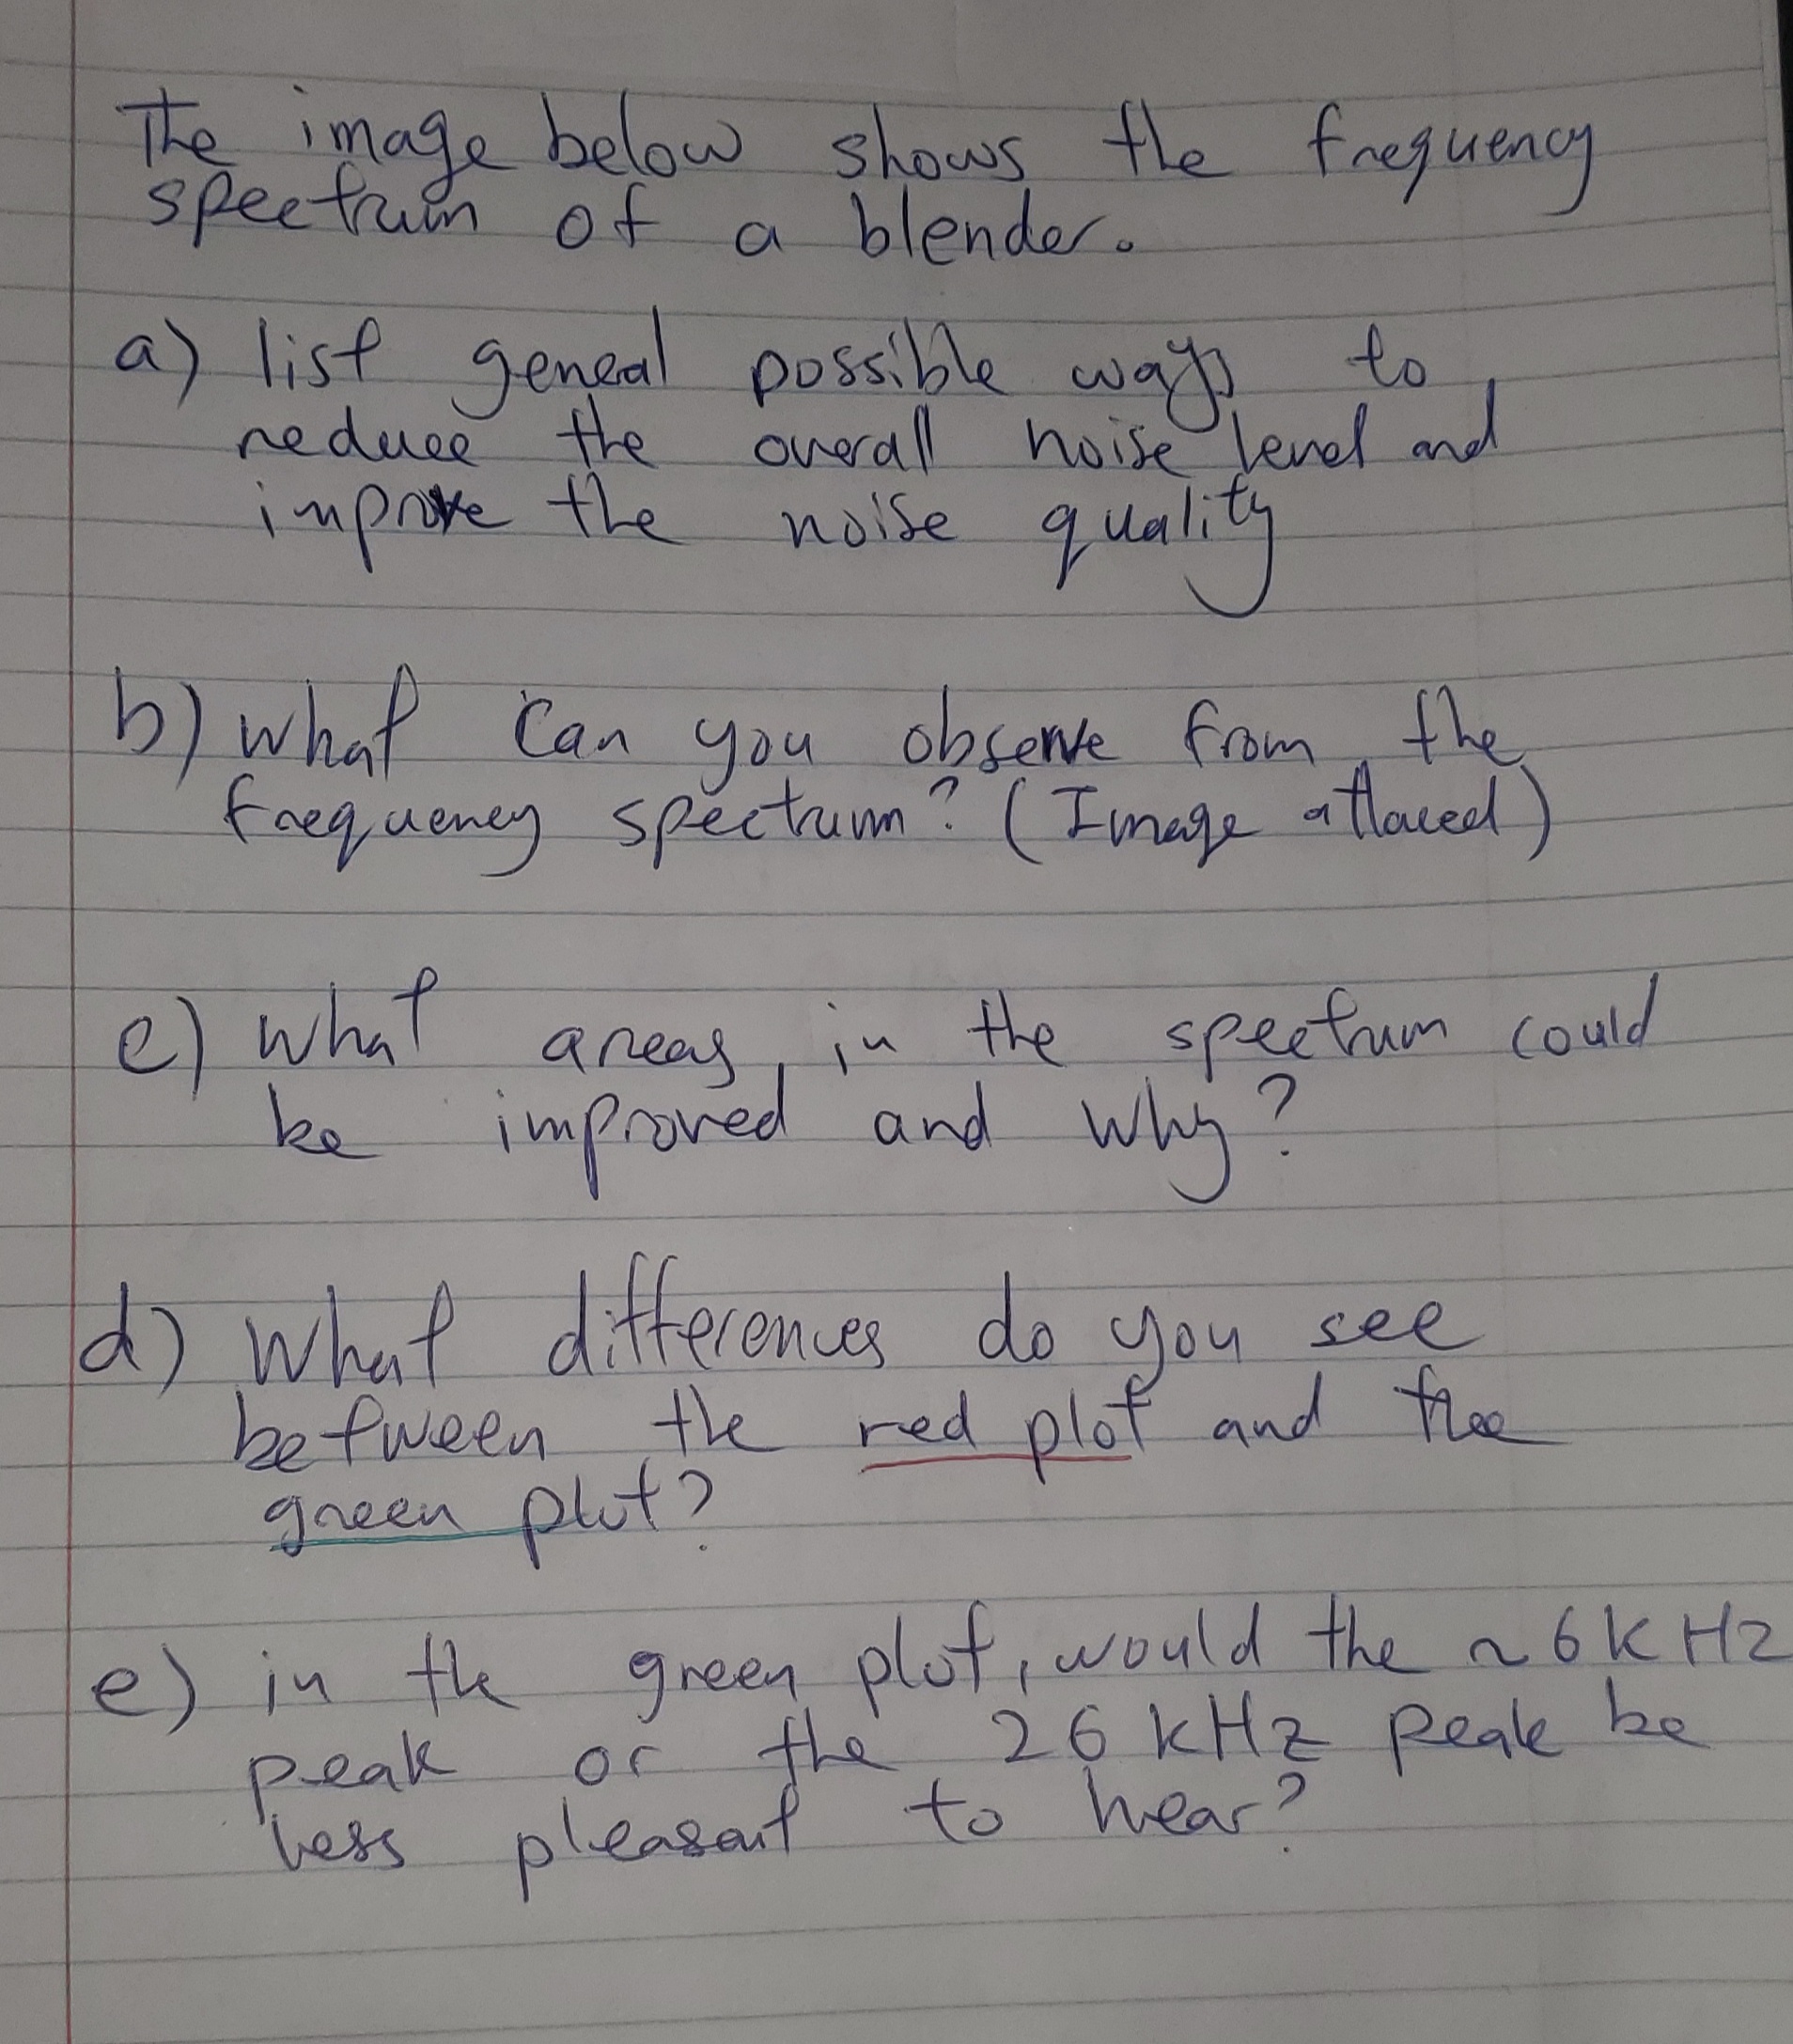 The image below shows the frequency
spectrum of a blender.
a) list general possible ways to
reduce the overall noise level and
improve the noise quality
b) what can you observe from the
frequency spectrum? (Image attaced)
c) what areas in the spectrum could
be improved and why?
d) what differences do you see
between the red plot and the
green plot?
e) in the green plot, would the ~6kHz
peak or the 26 kHz peak be
less pleasant to hear?